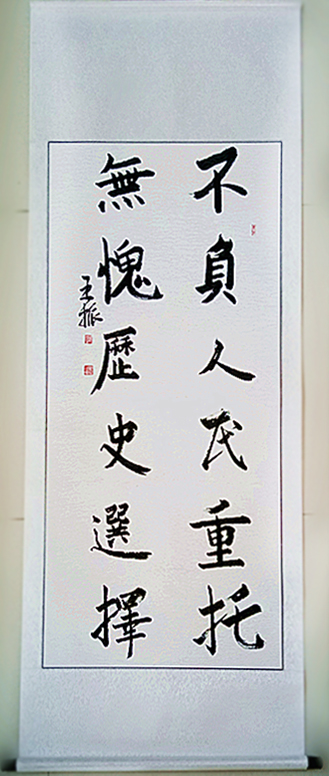 不負人民重托
無愧歷史選擇
王振